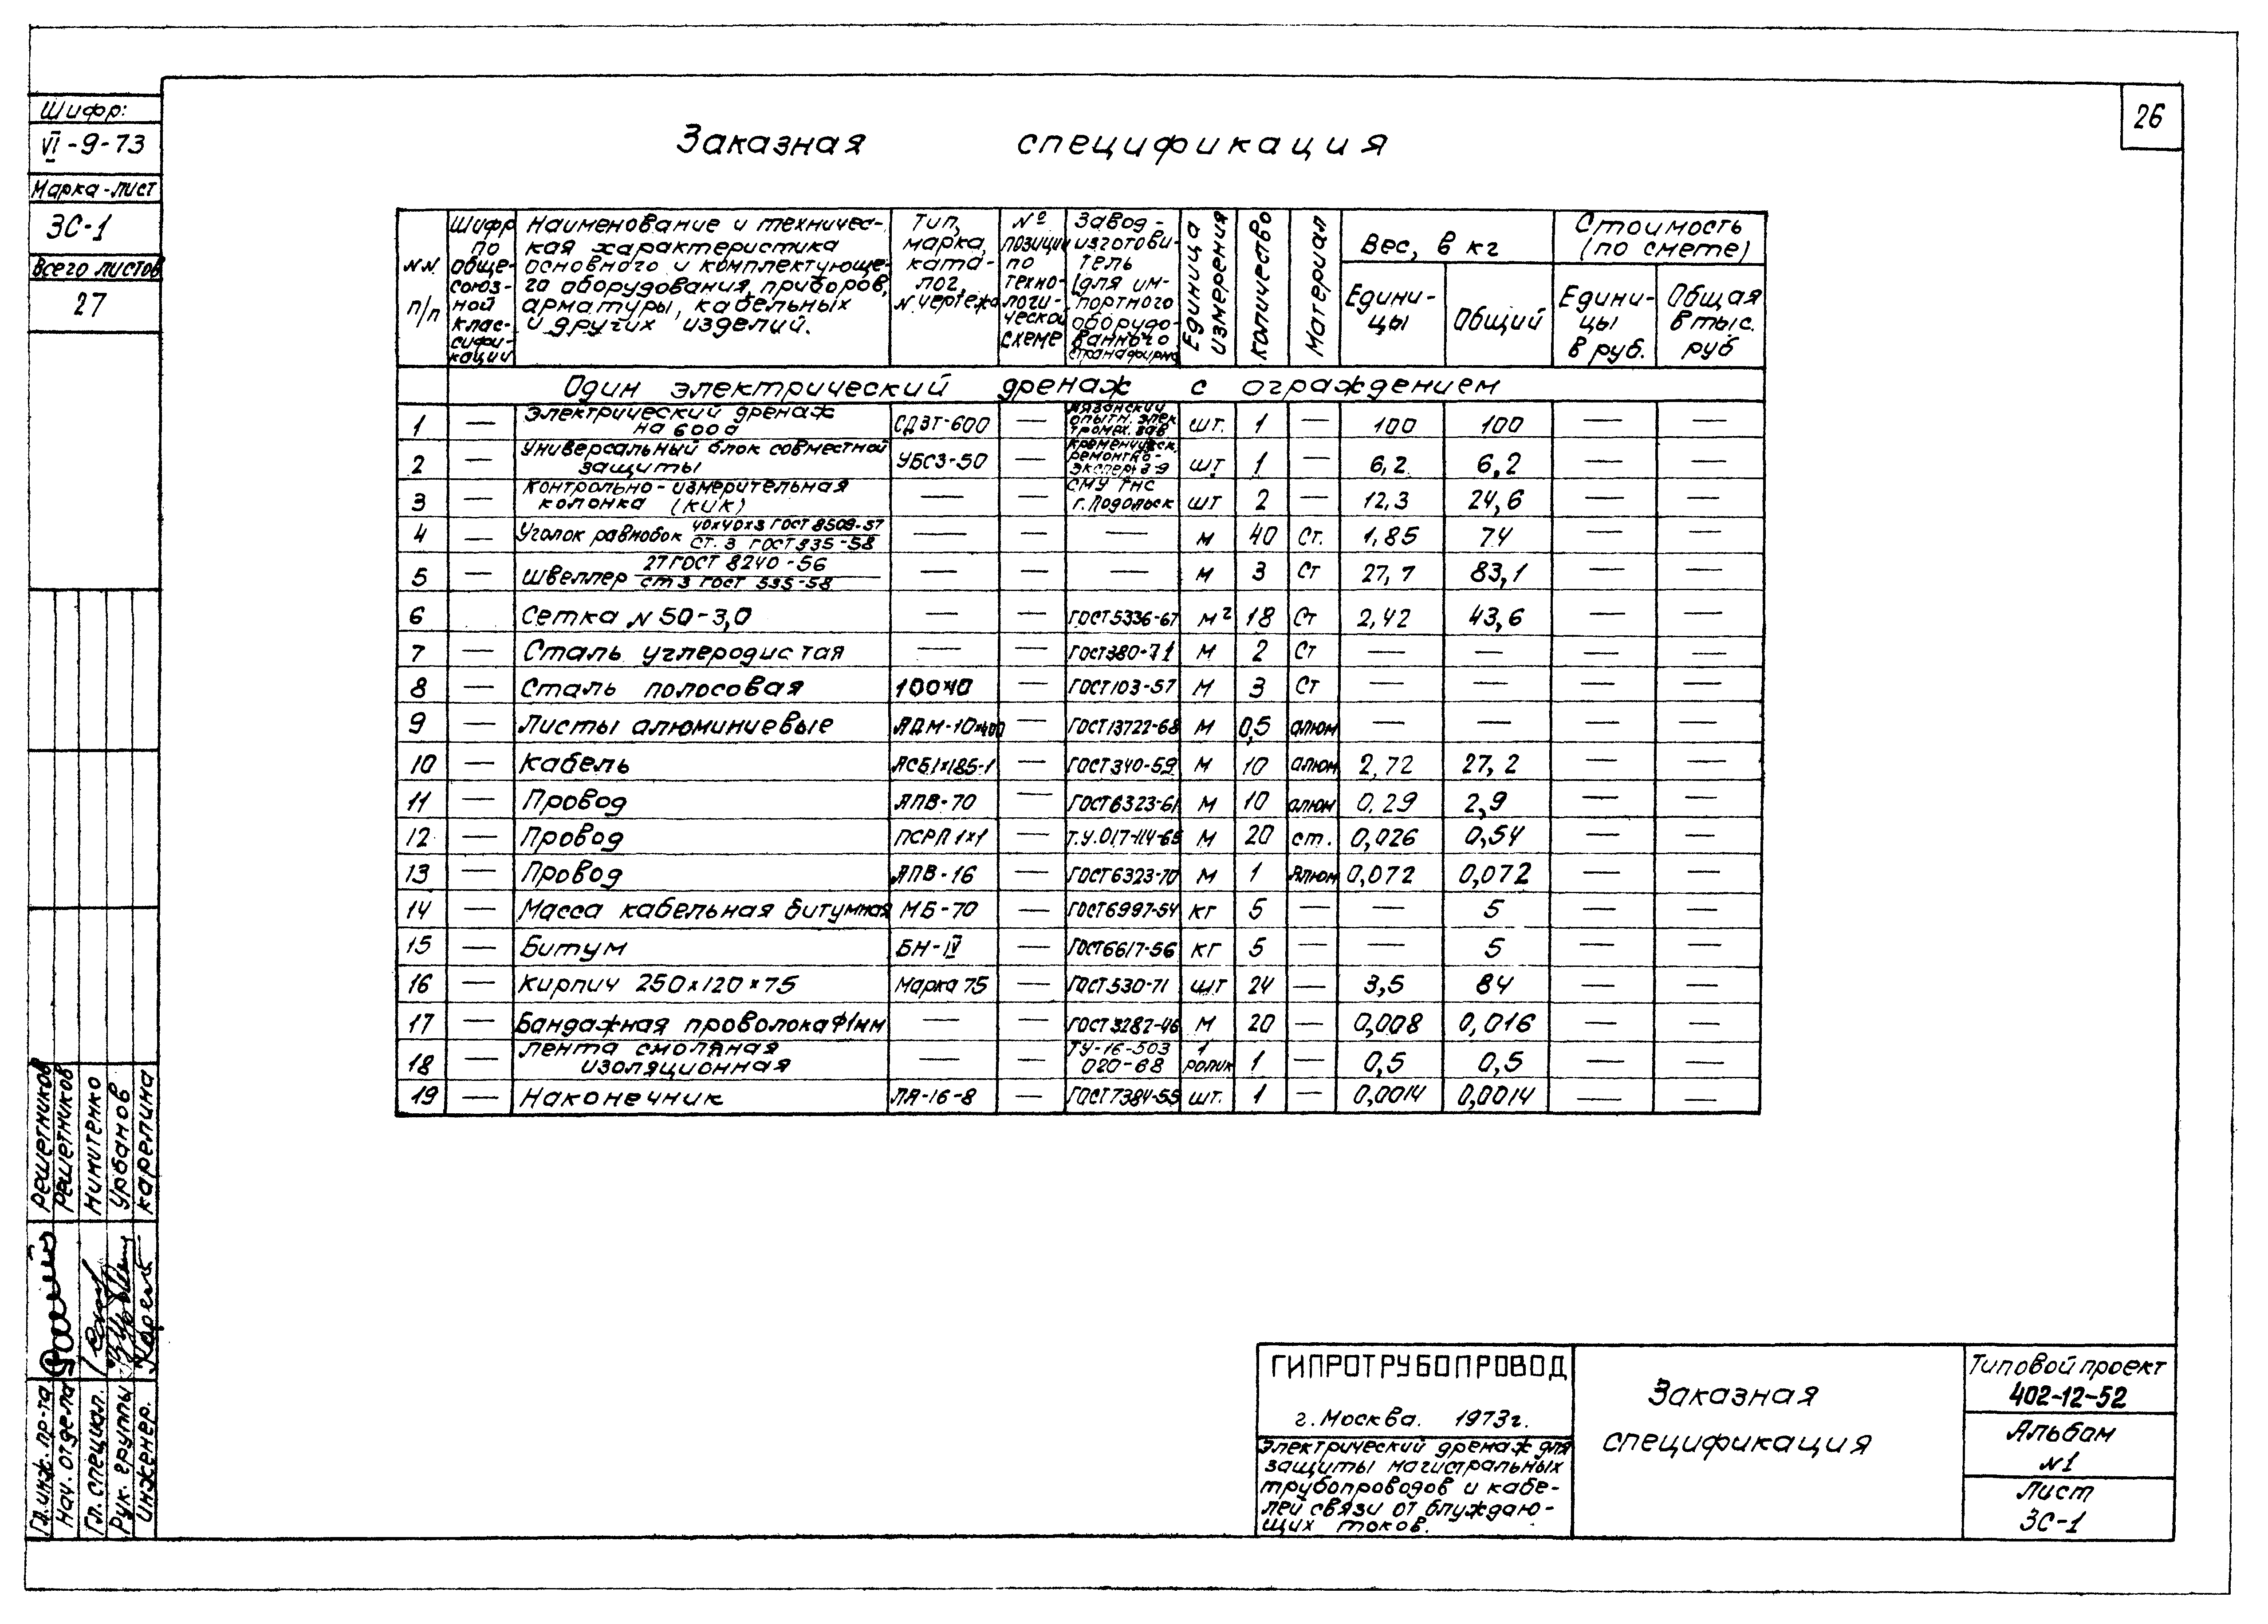 26
Шифр:
VI-9-73
Марка-лист
ЗС-1
Всего листов
27
Заказная спецификация
№№ п/п
Шифр по обще-союз-ной клас-сифи-кации
Наименование и техничес-
кая характеристика
основного и комплектующе-
го оборудования, приборов,
арматуры, кабельных
и других изделий.
Тип, марка, ката-лог, № чертежа
№ позиции по техно-логи-ческой схеме
Завод-изготови-тель (для им-портного оборудо-ванного страна фирма
Единица измерения
Количество
Материал
Вес, в кг
Едини-цы
Общий
Стоимость (по смете)
Едини-цы в руб.
Общая в тыс. руб
Один электрический дренаж с ограждением
1 — Электрический дренаж на 600а СДЗТ-600 — Рязанский опытн. элек тромех. зав шт. 1 — 100 100 — —
2 — Универсальный блок совместной защиты УБСЗ-50 — Кременчугск. ремонтно- шт 1 — 6,2 6,2 — —
3 — Контрольно-измерительная колонка (КИК) — — СМУ г. Подольск шт 2 — 12,3 24,6 — —
4 — Уголок равнобок 40х40х3 ГОСТ 8509-57 Ст. 3 ГОСТ 535-58 — — — м 40 Ст. 1,85 74 — —
5 — Швеллер 27 ГОСТ 8240-56 ст 3 ГОСТ 535-58 — — — м 3 Ст 27,7 83,1 — —
6 Сетка № 50-3,0 — — ГОСТ 5336-67 м² 18 Ст 2,42 43,6 — —
7 — Сталь углеродистая — — ГОСТ 380-71 м 2 Ст — — — —
8 — Сталь полосовая 100х10 — ГОСТ 103-57 м 3 Ст — — — —
9 — Листы алюминиевые АДМ-10х400 — ГОСТ 13722-68 м 0,5 алюм — — — —
10 — Кабель АСБ1х185-1 — ГОСТ 340-59 м 10 алюм 2,72 27,2 — —
11 — Провод АПВ-70 — ГОСТ 6323-61 м 10 алюм 0.29 2,9 — —
12 — Провод ПСРП 1х1 — Т.У.017-114-65 м 20 ст. 0,026 0,54 — —
13 — Провод АПВ-16 — ГОСТ 6323-70 м 1 Алюм 0,072 0,072 — —
14 — Масса кабельная битумная МБ-70 — ГОСТ 6997-54 кг 5 — — 5 — —
15 — Битум БН-IV — ГОСТ 6617-56 кг 5 — — 5 — —
16 — Кирпич 250х120х75 Марка 75 — ГОСТ 530-71 шт 24 — 3,5 84 — —
17 — Бандажная проволока Ф1мм — — ГОСТ 3282-46 м 20 — 0,008 0,016 — —
18 — Лента смоляная изоляционная — — ТУ-16-503 020-68 1 ролик 1 — 0,5 0,5 — —
19 — Наконечник ЛА-16-8 — ГОСТ 7384-55 шт. 1 — 0,0014 0,0014 — —
Гл. инж. пр-та Решетников
Нач. отдела Решетников
Гл. специал. Никитенко
Рук. группы Урбанов
Инженер. Карелина
ГИПРОТРУБОПРОВОД
г. Москва. 1973г.
Электрический дренаж для
защиты магистральных
трубопроводов и кабе-
лей связи от блуждаю-
щих токов.
Заказная
спецификация
Типовой проект
402-12-52
Альбом
№1
Лист
ЗС-1